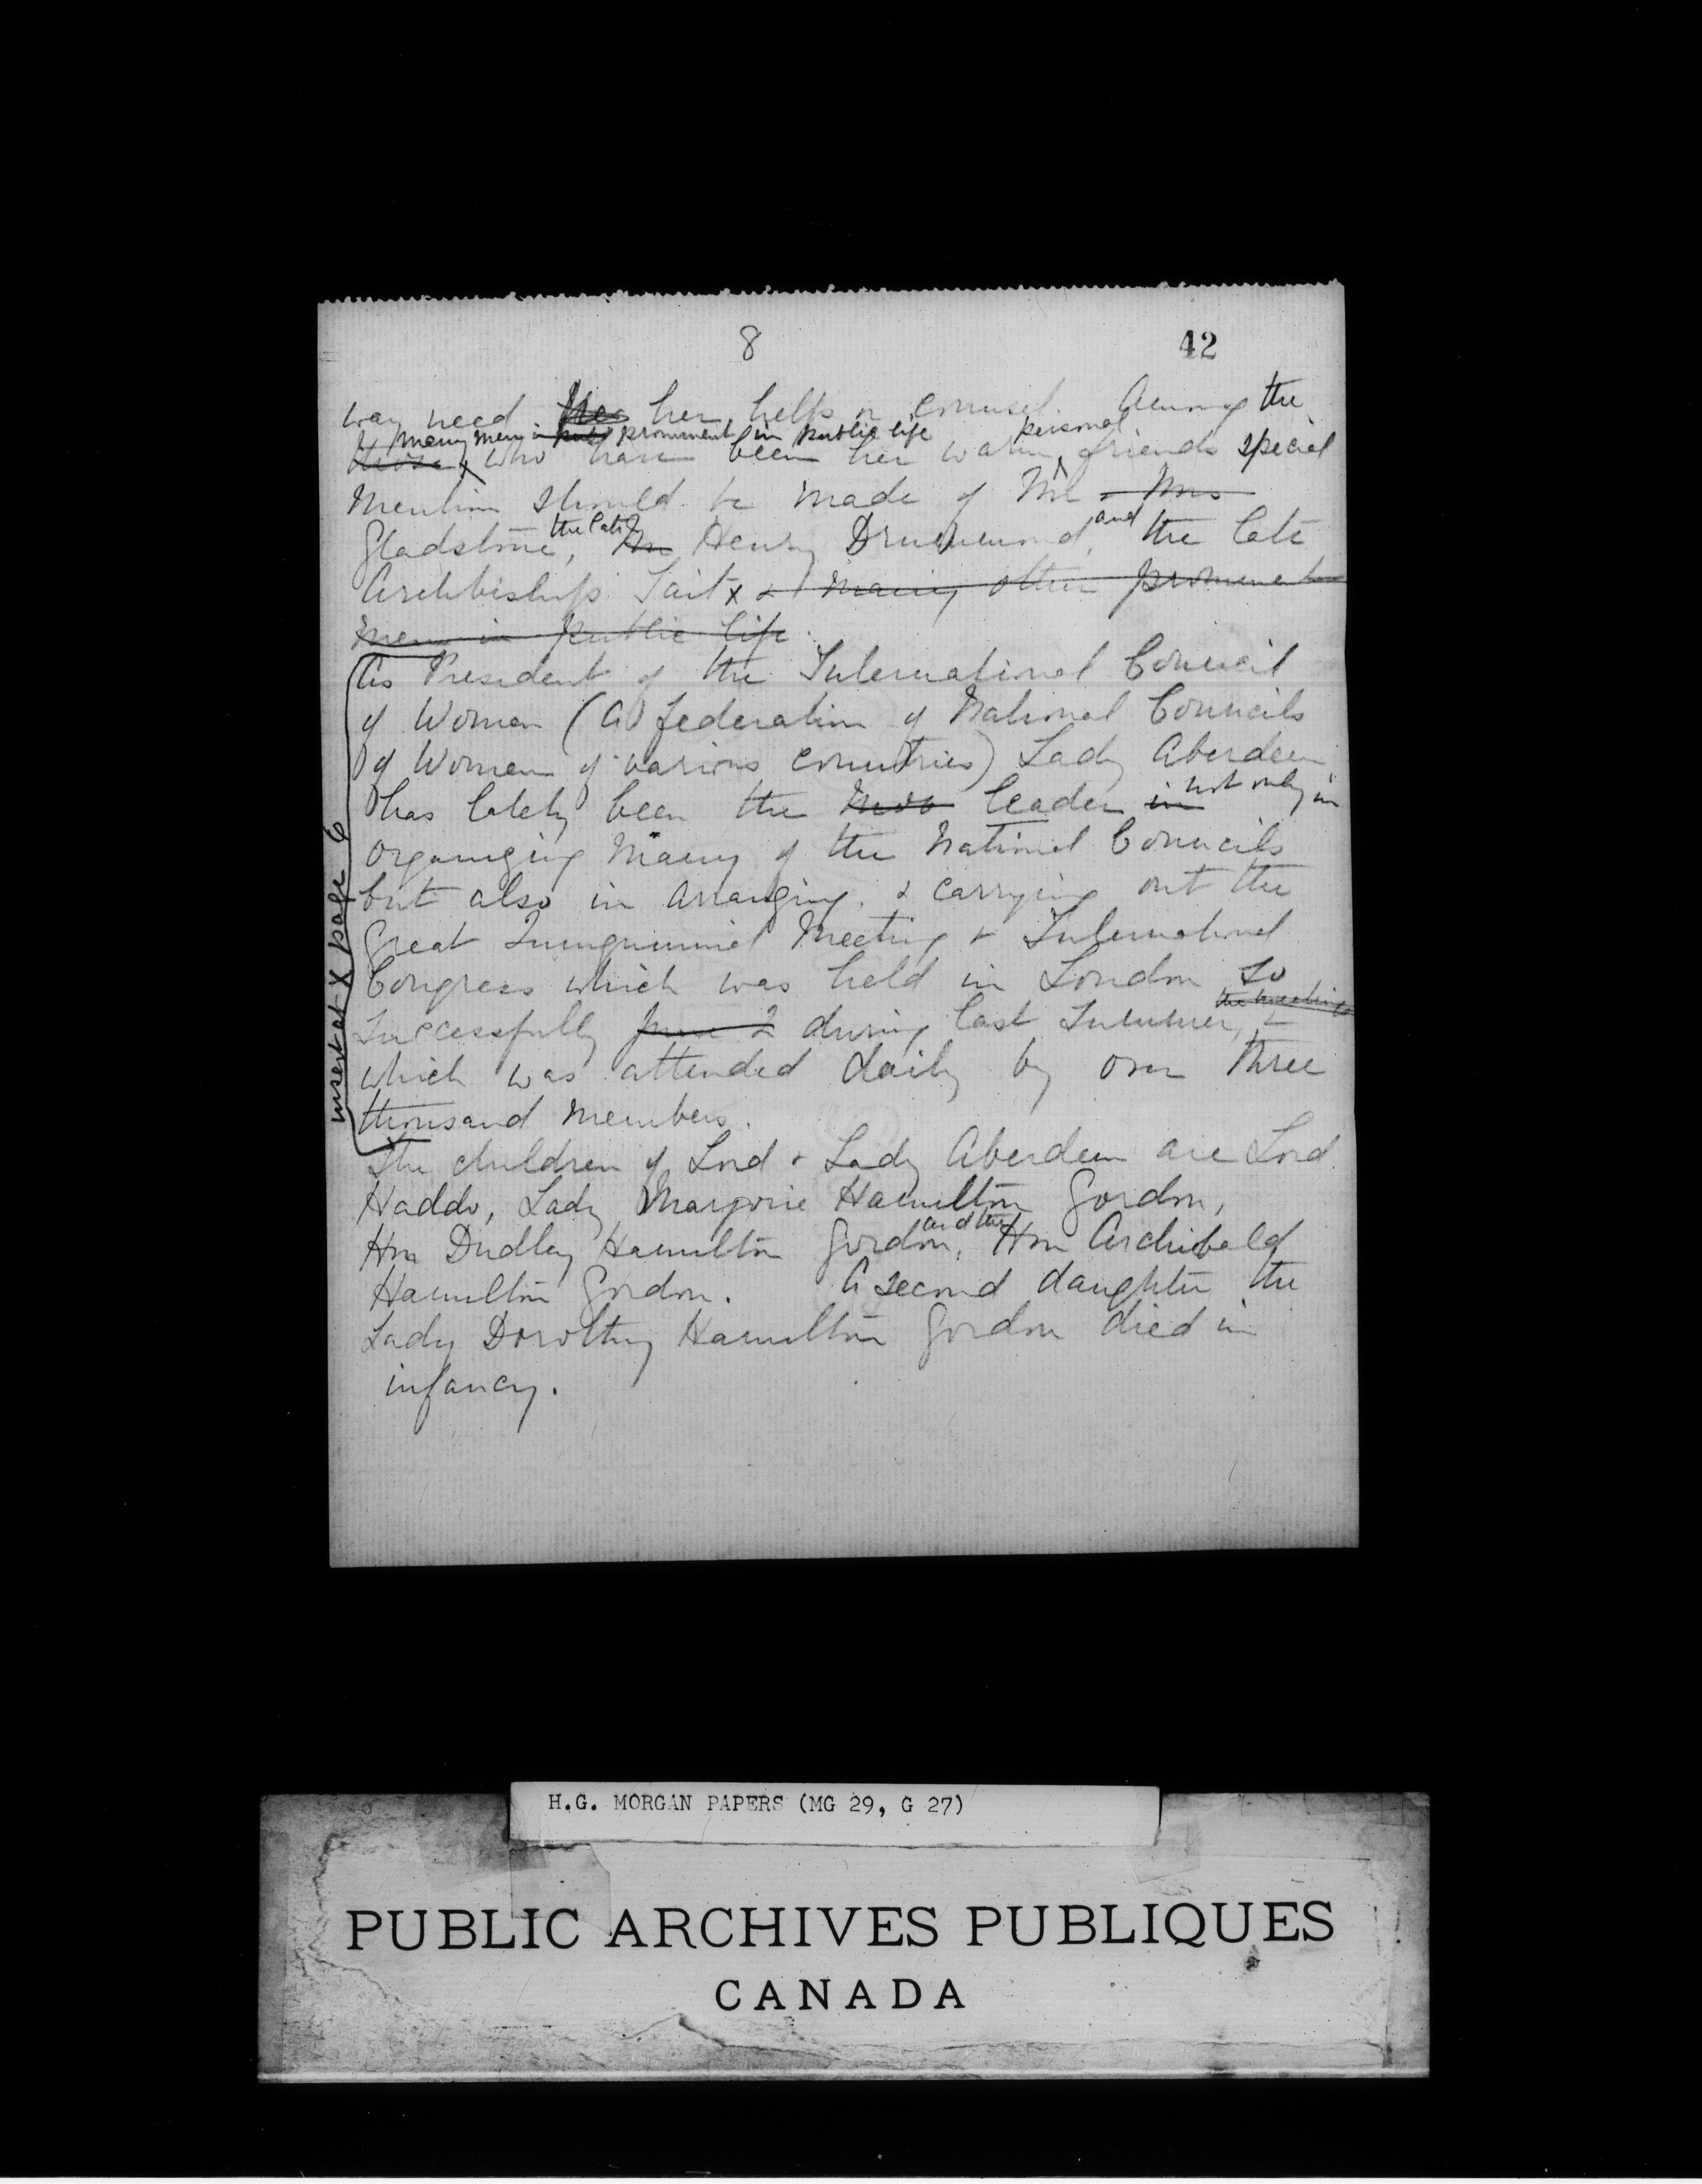 8 42
way need her help or counsel. Among the
many men in prominent in public life personal
those who have been her warm friends special
mention should be made of Mr & Mrs
the late and
Gladstone, Mr Henry Drummond, the late
Archbishop Tait x & many other prominent
men in public life.
As President of the International Council
of Women (a federation of National Councils
of Women of various countries) Lady Aberdeen
not only in
has lately been the leader in
organizing many of the National Councils
but also in arranging & carrying out the
Great Quinquennial Meeting & International
Congress which was held in London so
the meetings
successfully June 2 during last Summer, &
which was attended daily by over three
thousand members.
insert at X page 6
The children of Lord & Lady Aberdeen are Lord
Haddo, Lady Marjorie Hamilton Gordon,
and the
Hon Dudley Hamilton Gordon, Hon Archibald
Hamilton Gordon. A second daughter the
Lady Dorothy Hamilton Gordon died in
infancy.
H.G. MORGAN PAPERS (MG 29, G 27)
PUBLIC ARCHIVES PUBLIQUES
CANADA